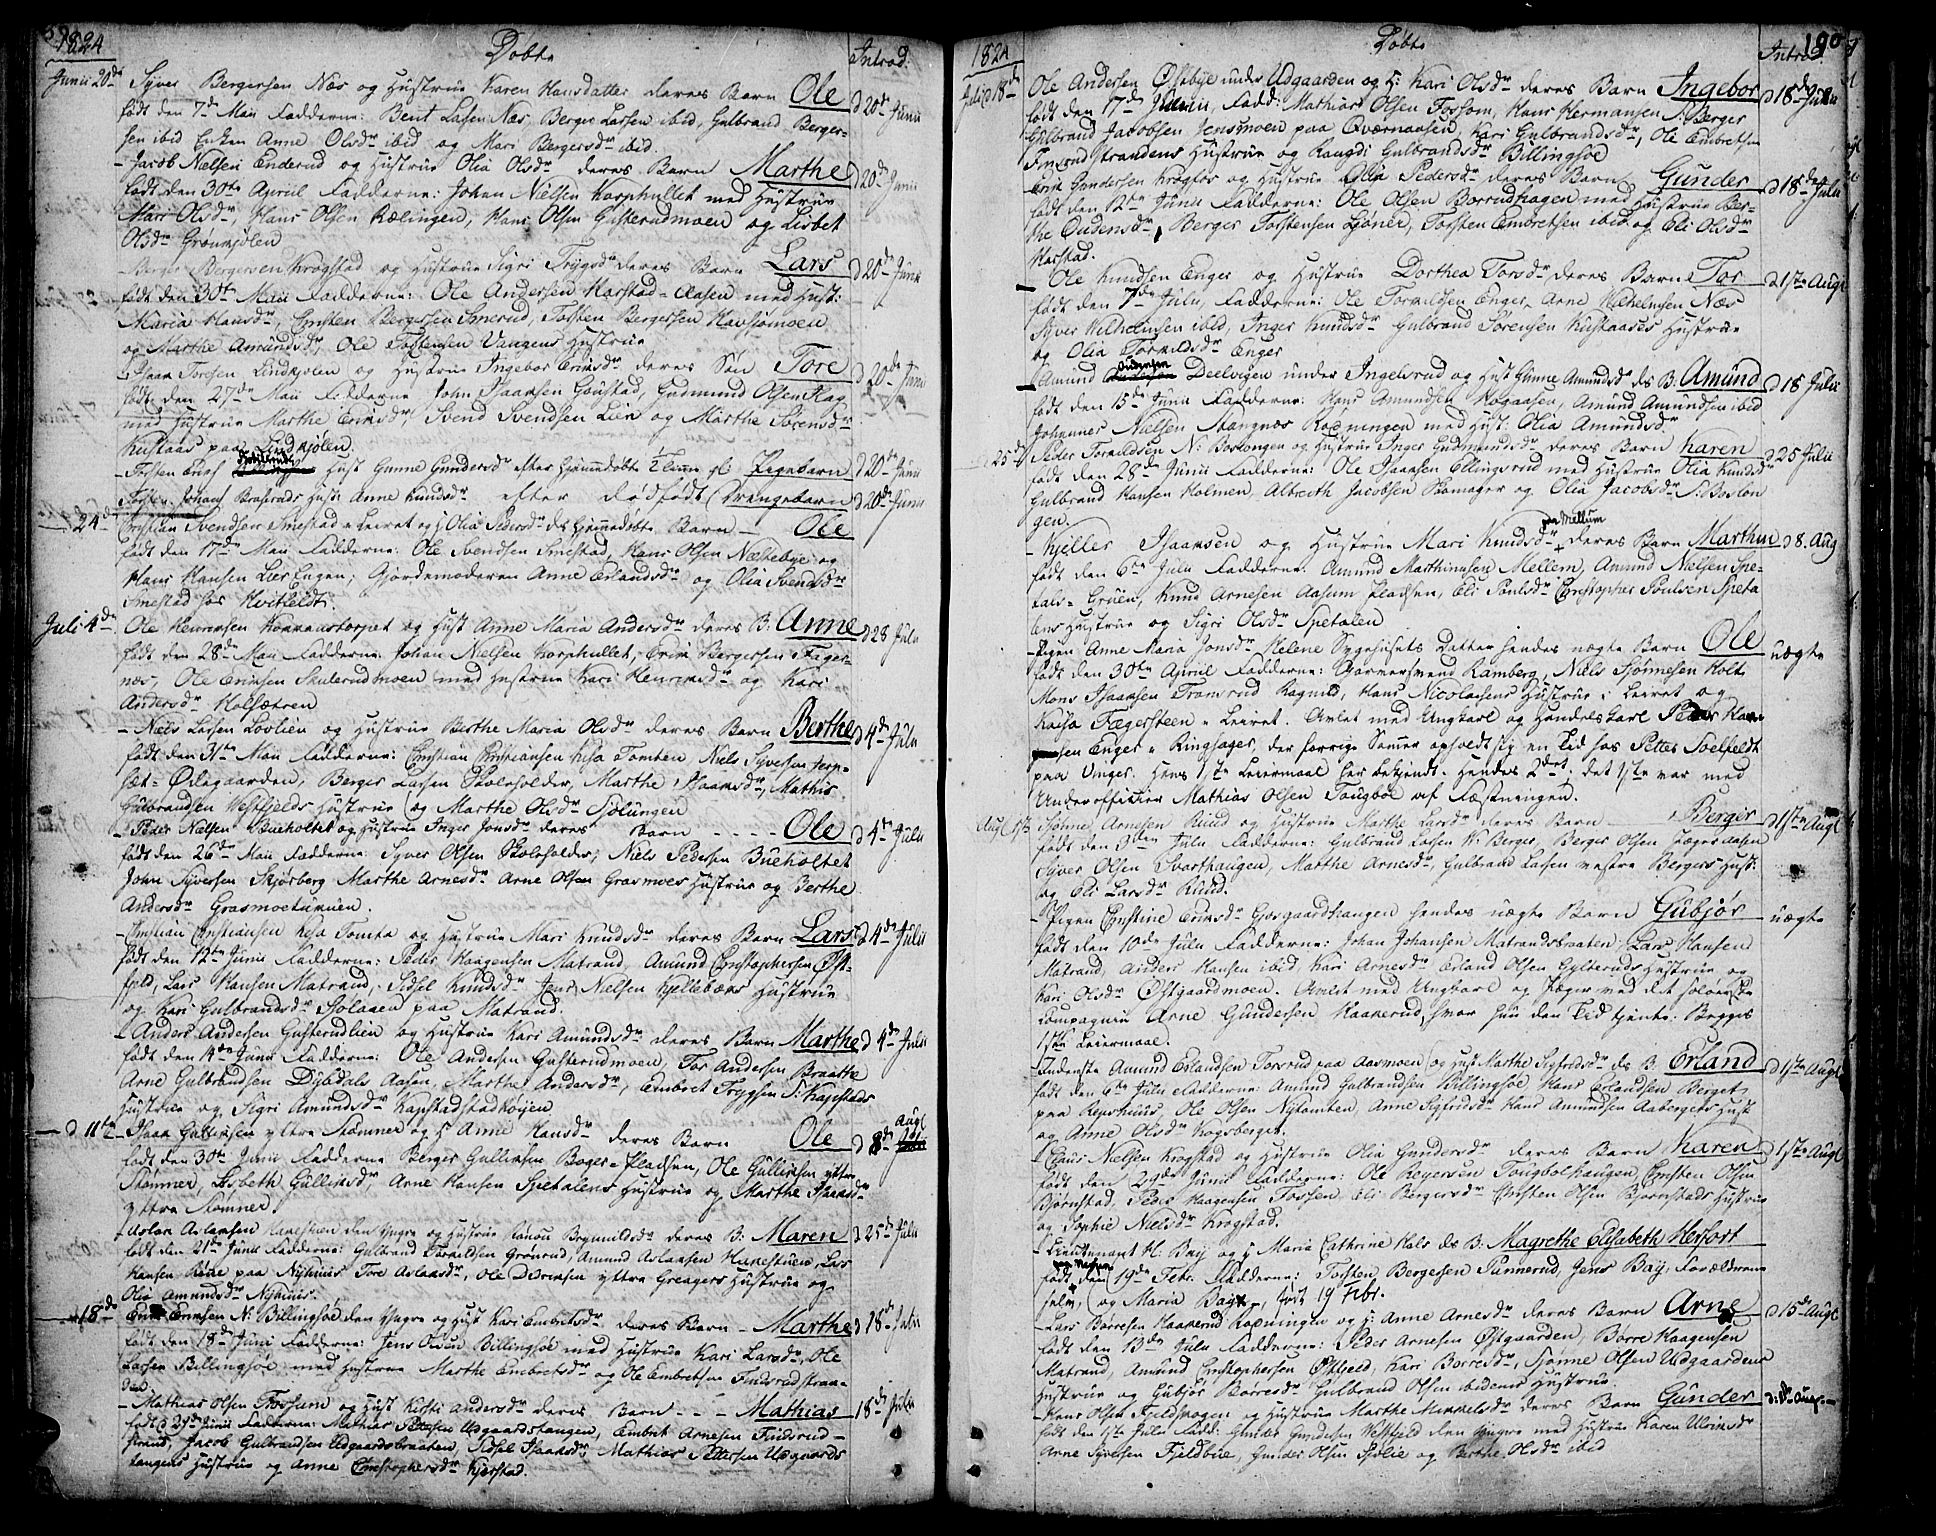 1824
Døbte
Introd:
Junii 20de Syver Bergersen Næs og Hustrue Karen Hansdatter deres Barn Ole d 20de Junii
født den 7de Maii Fadderne: Bent Larsen Næs, Berger Larsen ibid, Gulbrand Berger-
sen ibid Enken Anne Olsdr ibid og Mari Bergersdr ibid.
- Jacob Nielsen Enderud og Hustrue Olia Olsdr deres Barn Marthe d 20de Junii
født den 30te April Fadderne: Johan Nielsen Korphullet med Hustrue
Mari Olsdr, Hans Olsen Rælingen, Hans Olsen Gusterudmoen og Lisbet
Olsdr Grønkjølen
- Berger Bergersen Krogstad og Hustrue Sigri Trygsdr deres Barn Lars d 20de Junii
født den 30te Maii Fadderne: Ole Andersen Harstad-Aasen med Hust:
Maria Hansdr, Christen Bergersen Smerud, Torsten Bergersen Kavsjømoen
og Marthe Amundsdr, Ole Torstensen Vangens Hustrue
- Isaak Toresen Lindkjølen og Hustrue Ingebor Erichsdr deres Søn Tore d 20de Junii
født den 27de Maii Fadderne John Isaaksen Goustad, Gudmund Olsen Hag
med Hustrue Marthe Erichsdr, Svend Svendsen Lier og Marthe Sørensdr
Kustaas paa Lindkjølen.
Hust Gunne Gundersdr efter hjemmedøbt 1/2 Time gl: Pigebarn d 20de Junii
Hust: Anne Knudsdr efter dødfødt Drengebarn d 20de Junii
24de Christian Svendsen Smestad Leiret og H Olia Pedersdr ds hjemmedøbte Barn - Ole
født den 17de Maii Fadderne: Ole Svendsen Smestad, Hans Olsen Næbebye og
Hans Hansen Lier Engen, Gjordemoderen Anne Erlandsdr og Olia Svendsdr
Smestad hos Hvitfeldt.
Juli 4de Ole Henrichsen Kommaastorpet og Hust Anne Maria Andersdr deres B: Anne d 28 Julii
født den 28de Maii Fadderne: Johan Nielsen Korphullet, Erich Bergersen Fager-
næs, Ole Erichsen Skulerudmoen med Hustrue Kari Henrichsdr og Kari
Andersdr Holsætren
- Niels Larsen Loslien og Hustrue Berthe Maria Olsdr deres Barn Berthe d 4de Julii
født den 31te Maii Fadderne: Christian Christiansen Kisa Tomten Niels Syversen
Ødegaarden, Berger Larsen Skoleholder, Marthe Isaaksdr, Mathis
Gulbrandsen Vestfjelds Hustrue og Marthe Olsdr Sjølungen
- Peder Nielsen Bueholtet og Hustrue Inger Jonsdr deres Barn - - - - Ole d 4de Julii
født den 26de Maii Fadderne: Syver Olsen Skoleholder, Niels Pedersen Bueholtet
John Syversen Skjørberg Marthe Arnesdr Arne Olsen Grasmoes Hustrue og Berthe
Andersdr Grasmoetunuen.
- Christian Christiansen Kisa Tomta og Hustrue Mari Knudsdr deres Barn Lars d 4de Julii
født den 12te Junii Fadderne: Peder Haagensen Matrand, Amund Christophersen Øst-
fjeld, Lars Hansen Matrand, Sidsel Knudsdr Jens Nielsen Kjellebæks Hustrue
og Kari Gulbrandsdr Sjolaaen paa Matrand.
- Anders Andersen Gusterudlien og Hustrue Kari Amundsdr deres Barn Marthe d 4de Julii
født den 4de Junii Fadderne: Ole Andersen Gusterudmoen, Tor Andersen Braathe
Arne Gulbrandsen Dybdals Aasen, Marthe Andersdr, Embret Trygsen S: Kapstads
Hustrue og Sigri Amundsdr
d 11te Isaak Gullichsen yttre Stømner og H Anne Hansdr deres Barn Ole d 8de Augl
født den 30te Junii Fadderne Berger Gullichsen Boger-Pladsen, Ole Gullichsen yttre
Stømner, Lisbeth Gullichsdr, Arne Hansen Spetalens Hustrue og Marthe Isaaksdr
yttre Stømner
Aslak Aslaksen Harestuen den Yngre og Hustrue Rønou Brynildsdr deres B: Maren d 25de Julii
født den 21de Junii Fadderne: Gulbrand Torkildsen Grønrud, Amund Aslaksen Harestuen, Lars
Hansen Bøne paa Nyhuus Tore Aslaksdr, Ole Didrichsen yttre Greagers Hustrue og
Olia Amundsdr Nyhuus.
18de Erich Erichsen N: Billingsøe den Yngre og Hust Kari Embretsdr deres Barn - Marthe d 18de Julii
født den 18de Junii Fadderne: Jens Olsen Billingsøe med Hustrue Kari Larsdr, Ole
Larsen Billingsøe med Hustrue Marthe Embretsdr og Ole Embretsen Findsrudstran-
den.
- Mathias Olsen Fossum og Hust Kirsti Andersdr deres Barn - - - Mathias d 18de Julii
født d 23de Junii Fadderne: Mathias Pettersen Udgaardstangen, Embret Arnesen Findsrud-
strand, Jacob Gulbrandsen Udgaardsbraaten, Sidsel Isaaksdr, Mathias Pettersen Udgaards
tangens Hustrue og Anne Christophersdr Kjerstad.
1824
Døbte
190
Introd:
Julii d 18de Ole Andersen Østbye under Udgaarden og H: Kari Olsdr deres Barn Ingebor d 18de Julii
født den 17de Junii, Fadd: Mathias Olsen Fossom, Hans Hermansen S: Berger
Gulbrand Jacobsen Jensmoen paa Qværnaasen, Kari Gulbrandsdr, Ole Embretsen
Finsrudstrandens Hustrue og Raugdi Gulbrandsdr Billingsøe
Erich Gundersen Krogfos og Hustrue Olia Pedersdr deres Barn Gunder d 18de Julii
født den 12te Junii Fadderne: Ole Olsen Borrudhagen med Hustrue Ber-
the Oudensdr, Berger Torstensen Lioner, Torsten Embretsen ibid og Eli Olsdr
Harstad.
- Ole Knudsen Enger og Hustrue Dorthea Torsdr deres Barn Tor d 1ste Augl
født den 7de Julii, Fadderne: Ole Torkildsen Enger, Arne Wilhelmsen Næs
Syver Wilhelmsen ibid, Inger Knudsdr Gulbrand Sørensen Kustaases Hustrue
og Olia Torkildsdr Enger
- Amund Andersen Deelvigen under Ingelsrud og Hust Gunne Amundsdr ds B: Amund d 18 Julii
født den 15de Junii Fadderne: Hans Amundsen Holaasen, Amund Amundsen ibid
Johannes Nielsen Mangnæs Rødningen med Hust: Olia Amundsdr
25de Peder Torkildsen N: Boslongen og Hustrue Inger Gudmundsdr deres Barn Karen d 25 Julii
født den 28de Junii Fadderne: Ole Isaaksen Ellingsrud med Hustrue Olia Knudsdr
Gulbrand Hansen Holmen, Albrecth Jacobsen Skomager og Olia Jacobsdr S: Boslon
gen.
- Kjeller Isaaksen og Hustrue Mari Knudsdr paa Mellum deres Barn Marthin d 8. Aug
født den 6te Julii Fadderne: Amund Marthinusen Mellem, Amund Nielsen Spe-
tals-Gruen, Knud Arnesen Aasum Pladsen, Eli Poulsdr Christopher Poulsen Speta
lens Hustrue og Sigri Olsdr Spetalen
- Pigen Anne Maria Jonsdr Helene Sygehusets Datter hendes uægte Barn Ole uægte
født den 30te April Fadderne: Qvarmesvend Ramberg, Niels Sjønnesen Holt
Mons Isaaksen Tramsrud Ragnild, Hans Nicolaisens Hustrue i Leiret og
Kaisa Fægersteen Leiret. Avlet med Ungkarl og Handelskarl Peder Han-
sen Enger Ringsager, der forrige Sommer opholdt sig en Tid hos Petter Soelfeldt
paa Vinger. Hans 1ste Leiermaal her bekjendt. Hendes 2det. det 1ste var med
Underofficier Mathias Olsen Tougbøl af Fæstningen.
Augl 1ste Sjønne Arnesen Ruud og Hustrue Marthe Larsdr deres Barn - Berger d 1ste Augl
født den 3de Julii Fadderne: Gulbrand Larsen W: Berger, Berger Olsen Jægeraasen
Syver Olsen Svarthaugen, Marthe Arnesdr, Gulbrand Larsen vestre Bergers Hust:
og Eli Larsdr Ruud.
- Pigen Christine Erichsdr Gjosgaardhaugen hendes uægte Barn Gubjør uægte
født den 10de Julii Fadderne: Johan Johansen Matrandsbraaten, Lars Hansen
Matrand, Anders Hansen ibid, Kari Arnesdr Erland Olsen Gylteruds Hustrue og
Kari Olsdr Østgaardmoen. Avlet med Ungkarl og Jæger ved det Soløerske
Compagnie Arne Gundersen Haakerud, hvor hun den Tid tjente. Begges
1ste Leiermaal.
Inderste Amund Erlandsen Torsrud paa Aasmoen og Hust Marthe Sigfridsdr ds B. Erland d 1ste Augl
født den 6te Julii Fadderne: Amund Gulbrandsen Billingsøe, Hans Erlandsen Berget
paa Repshuus, Ole Olsen Nytomten, Anne Sigfridsdr Hans Amundsen Aabergets Hust
og Anne Olsdr Kogsberget.
- Claus Nielsen Krogstad og Hustrue Olia Gundersdr deres Barn Karen d 1ste Augl
født den 29de Junii Fadderne: Ole Rogersen Tougbølhaugen, Christen Olsen
Bjørnstad, Peder Haagensen Forsen, Eli Bergersdr Christen Olsen Bjørnstads Hustrue
og Sophie Nielsdr Krogstad.
- Lieutenant H: Bay og H Maria Cathrine Hals ds B: Magrethe Elisabeth Herfort
født den 19de Febr. Fadderne: Torsten Bergersen Sunnerud, Jens Bay, Forældrene
selv, og Maria Bay, født 19 Febr.
- Lars Børresen Haakerud Rapningen og H: Anne Arnesdr deres Barn Arne d 15de Augl
født den 13de Julii Fadderne: Peder Arnesen Østgaarden, Børre Haagensen
Matrand, Amund Christophersen Østfjeld, Kari Børresdr, Sjønne Olsen Udgaardens
Hustrue og Gubjør Børresdr Gulbrand Olsen ibidems Hustrue
- Hans Olsen Fjeldskogen og Hustrue Marthe Mikkelsdr deres Barn Gunder
født den 1ste Julii Fadd: Gunder Gundersen Vestfjeld den Yngre med Hustrue Karen Ulrichsdr
Arne Syversen Fjeldbue, Gunder Olsen Sjølie og Berthe Olsdr ibid